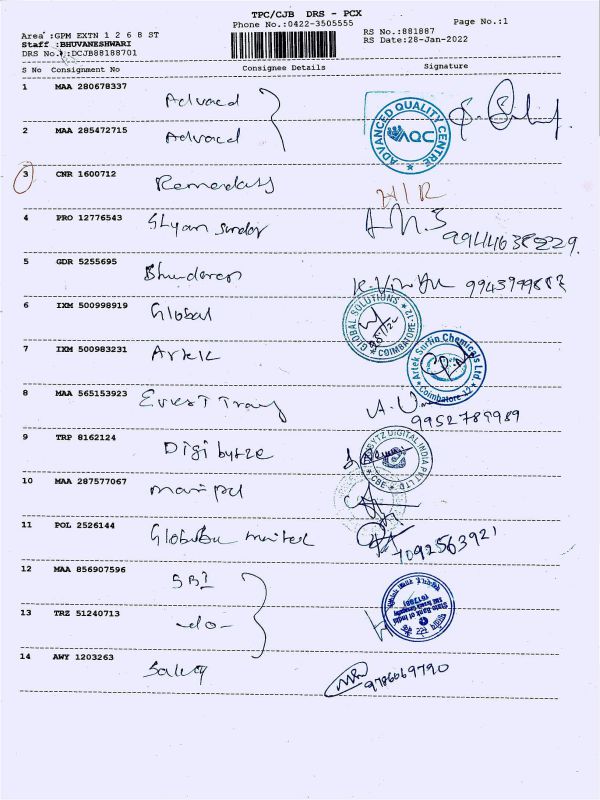 TPC/CJB DRS - PCX
Phone No.:0422-3505555
Page No.:1
Area :GPM EXTN 1 2 6 8 ST
RS No.:881887
Staff :BHUVANESHWARI
RS Date:28-Jan-2022
DRS No.:DCJB88188701
S No Consignment No Consignee Details Signature
1 MAA 280678337 Advaced
2 MAA 285472715 Advaced
ADVANCED QUALITY CENTRE
AQC
3 CNR 1600712
4 PRO 12776543 Shyam sundar
5 GDR 5255695
6 IXM 500998919 Global
GLOBAL SOLUTIONS
COIMBATORE-12
7 IXM 500983231 Artek
Artek Surfin Chemicals Ltd
Coimbatore 12
8 MAA 565153923
9952789989
9 TRP 8162124 Digi bytze
BYTZ DIGITAL INDIA PVT LTD
CBE
10 MAA 287577067
11 POL 2526144
7092563921
12 MAA 856907596 SBI
State Bank of India
13 TRZ 51240713 -do-
14 AWY 1203263
9786069790